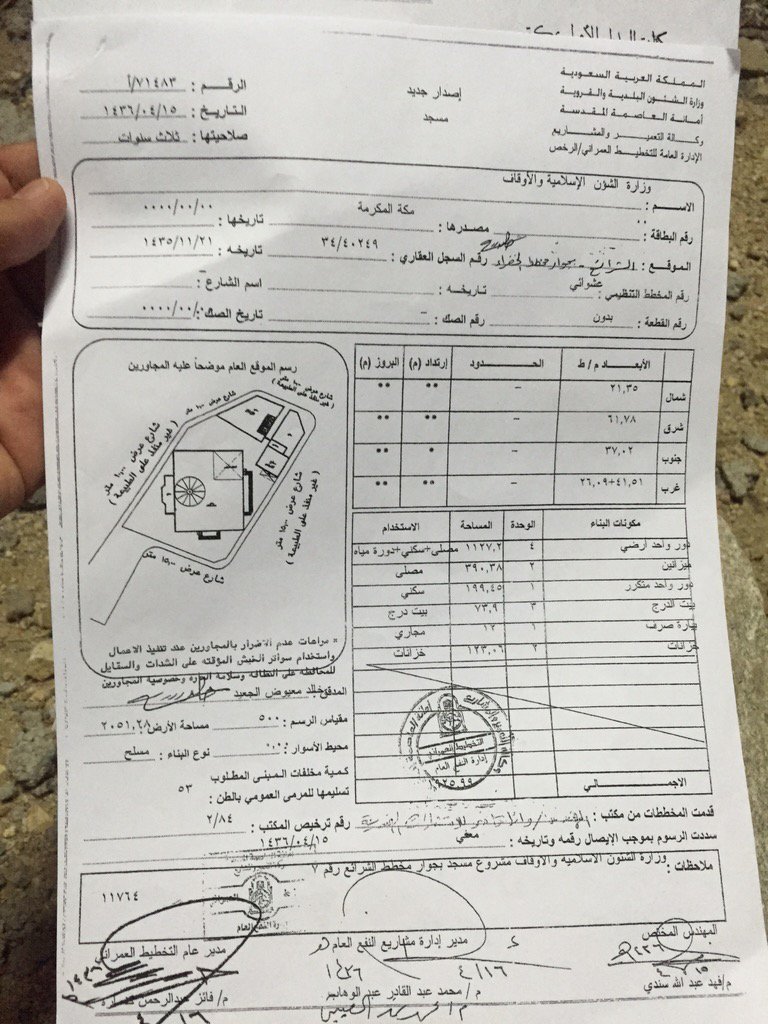 المملكة العربية السعودية
وزارة الشئون البلدية والقروية
أمانة العاصمة المقدسة
وكالة التعمير والمشاريع
الإدارة العامة للتخطيط العمراني/الرخص
إصدار جديد
مسجد
الرقم : ٧١٤٨٣/أ
التاريخ : ١٤٣٦/٠٤/١٥
صلاحيتها : ثلاث سنوات
الاسم : وزارة الشؤن الإسلامية والأوقاف
رقم البطاقة : ٠٠ مصدرها : مكة المكرمة تاريخها : ٠٠٠٠/٠٠/٠٠
الموقع : الشرائع - بجوار مخطط رقم السجل العقاري : ٣٤/٤٠٢٤٩ تاريخه : ١٤٣٥/١١/٢١
رقم المخطط التنظيمي : عشوائي تاريخه : اسم الشارع : -
رقم القطعة : بدون رقم الصك : - تاريخ الصك : ٠٠٠٠/٠٠/٠
رسم الموقع العام موضحاً عليه المجاورين
شارع عرض ١٠,٠٠ متر
( غير منفذ على الطبيعة )
شارع عرض ١٠,٠٠ متر
( غير منفذ على الطبيعة )
شارع عرض ١٥,٠٠ متر
( غير منفذ على الطبيعة )
شارع عرض ١٥,٠٠ متر
الأبعاد م / ط الحدود إرتداد (م) البروز (م)
شمال ٢١,٣٥ - ٠٠ ٠٠
شرق ٦١,٧٨ - ٠٠ ٠٠
جنوب ٣٧,٠٢ - ٠ ٠٠
غرب ٤١,٥١+٢٦,٠٩ - ٠٠ ٠٠
مكونات البناء الوحدة المساحة الاستخدام
دور واحد أرضي ٤ ١١٢٧,٢ مصلى+سكني+دورة مياه
ميزانين ٢ ٣٩٠,٣٨ مصلى
دور واحد متكرر ١ ١٩٩,٤٥ سكني
بيت الدرج ٣ ٧٣,٩ بيت درج
بيارة صرف ١ ١٢ مجاري
خزانات ٢ ١٢٣,٠٦ خزانات
الاجمالي ١٩٢٥,٩٩
التخطيط العمراني
إدارة النفع العام
* مراعات عدم الاضرار بالمجاورين عند تنفيذ الاعمال
وإستخدام سواتر الخيش المؤقته على الشدات والسقايل
للمحافظه على النظافه وسلامة المارة وخصوصية المجاورين
المدقق خالد معيوض الجعيد
مقياس الرسم : ٥٠٠ مساحة الأرض : ٢٠٥١,٢٨
محيط الأسوار : ٠,٠٠ نوع البناء : مسلح
كمية مخلفات المبنى المطلوب
تسليمها للمرمى العمومي بالطن : ٥٣
قدمت المخططات من مكتب : رقم ترخيص المكتب : ٢/٨٤
سددت الرسوم بموجب الإيصال رقمه وتاريخه : معفي ١٤٣٦/٠٤/١٥
ملاحظات : وزارة الشئون الاسلامية والاوقاف مشروع مسجد بجوار مخطط الشرائع رقم ٧
١١٧٦٤
المهندس المختص
مدير إدارة مشاريع النفع العام
مدير عام التخطيط العمراني
٤/١٦
م/فهد عبد الله سندي
م / محمد عبد القادر عبد الوهاب